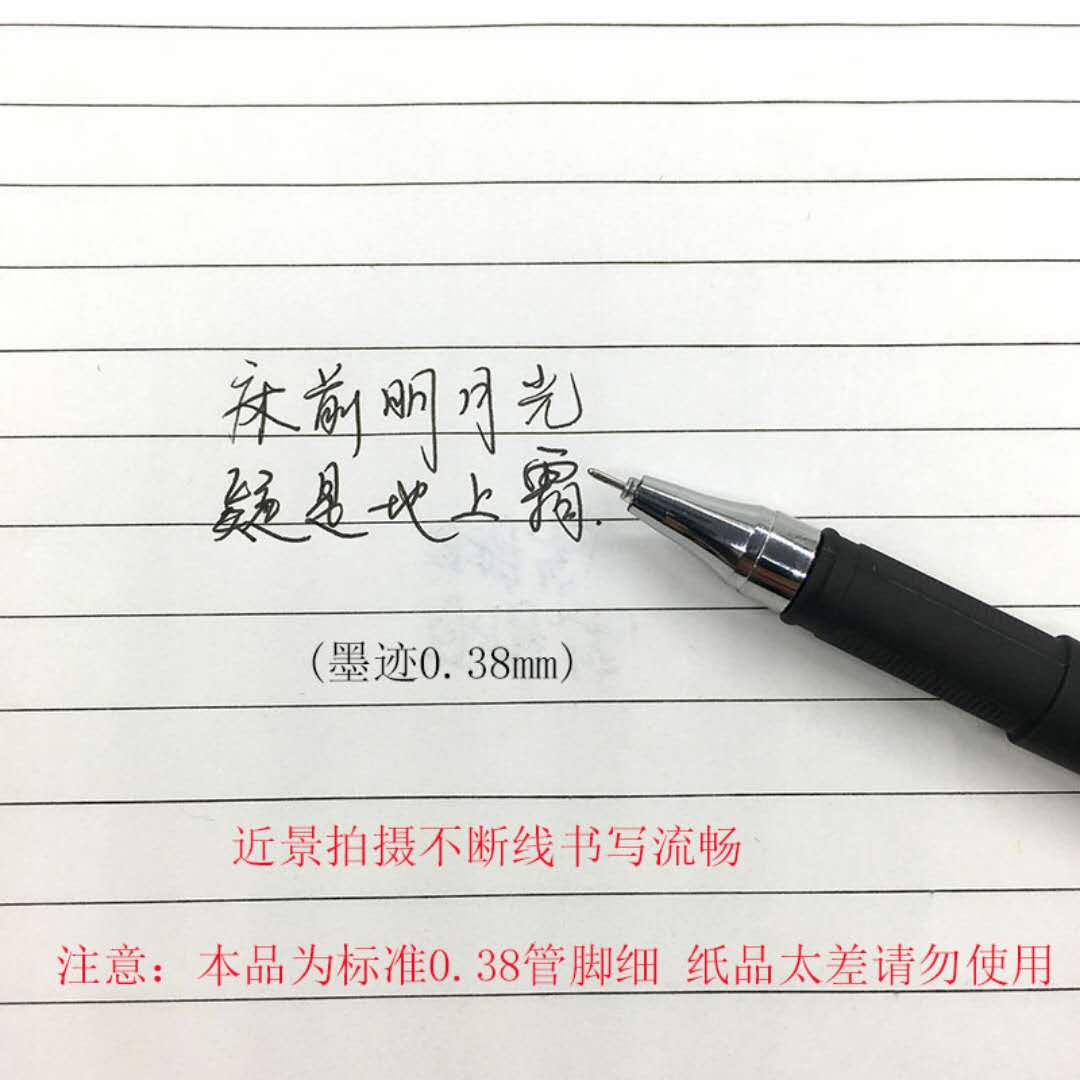 床前明月光
疑是地上霜.
(墨迹0.38mm)
近景拍摄不断线书写流畅
注意：本品为标准0.38管脚细 纸品太差请勿使用